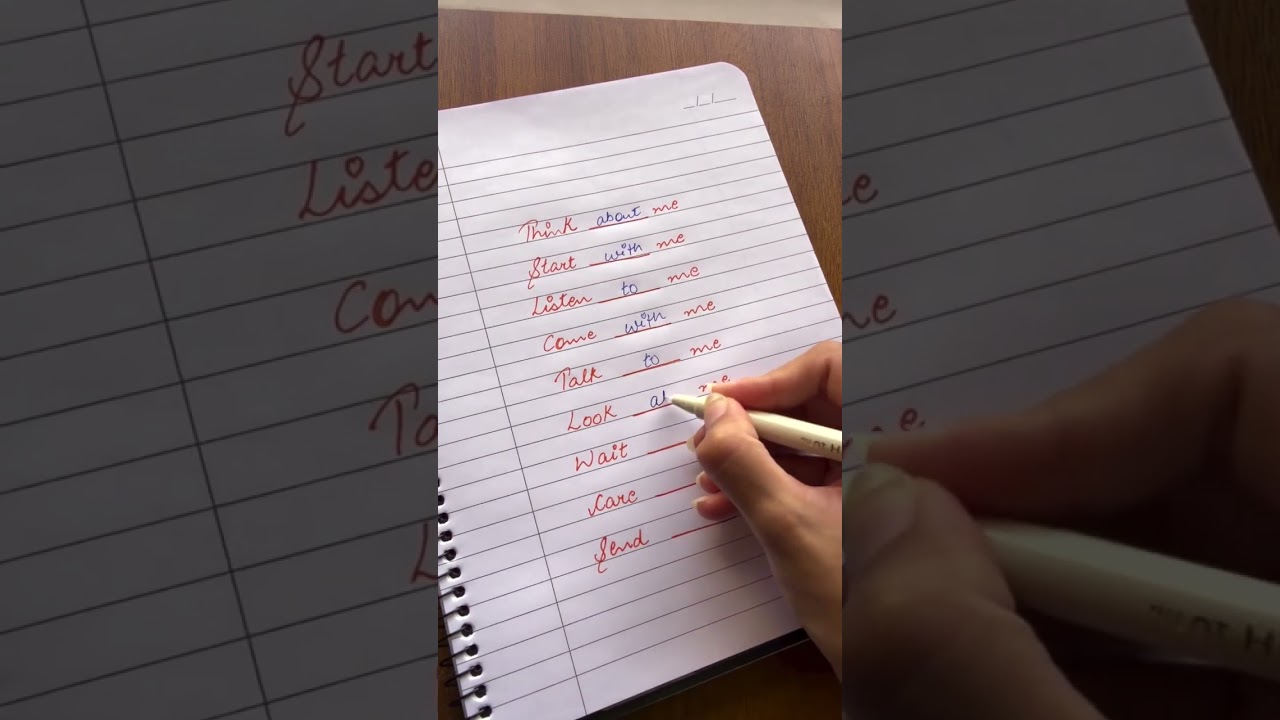 Think about me
Start with me
Listen to me
Come with me
Talk to me
Look me
Wait
Care
Send